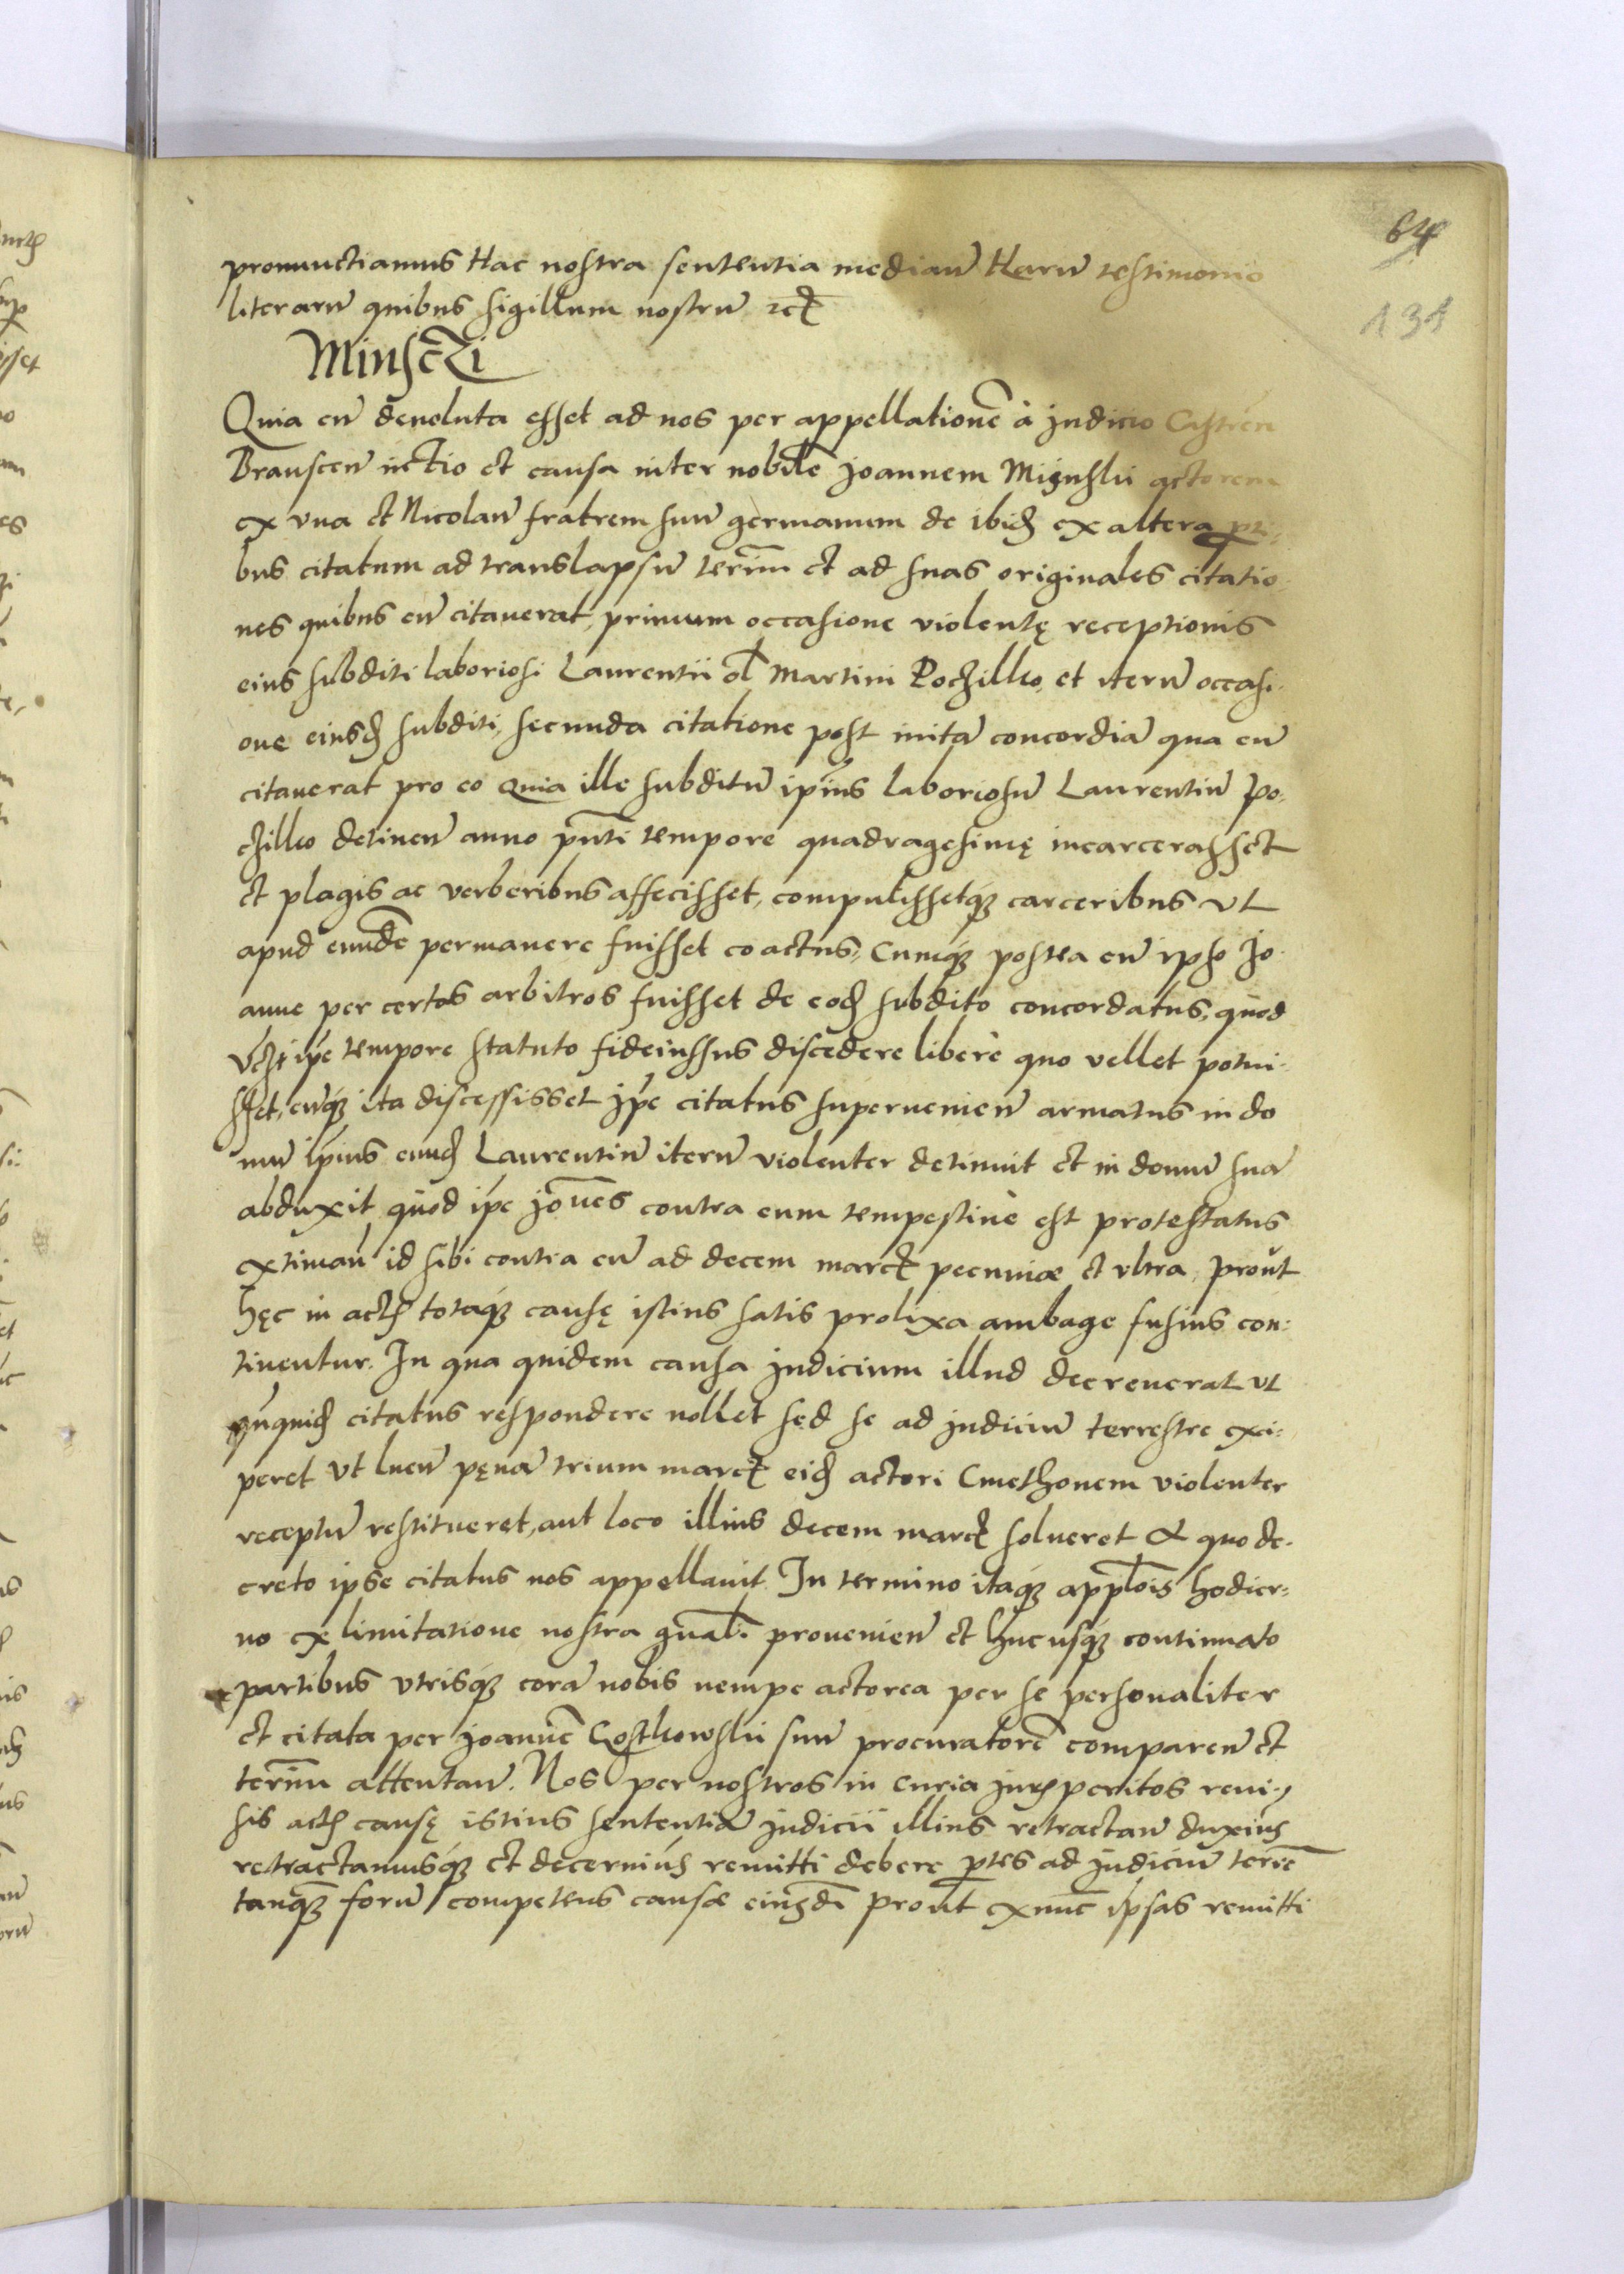 64
131
pronunctiamus Hac nostra sententia median̄ Harū testimonio
literarū quibus sigillum nostrū etc̄
Minsczi
Quia cū deuoluta esset ad nos per appellationē à judicio Castren̄
Branscen̄ actio et causa inter nobilē joannem actorem
ex vna et Nicolaū fratrem suū germanum de ibid̄ ex altera ꝑti-
bus citatum ad translapsū term̄ et ad suas originales citatio
nes quibus eū citauerat, primum occasione violentę receptionis
eius subditi laboriosi Laurentii ol̄ Martini Poczilko, et iterū occasi-
one eiusd̄ subditi, secunda citatione post initā concordiā qua eū
citauerat pro eo quia ille subditū ip̄ius laboriosū Laurentiū Po-
czilko detinen̄ anno pn̄ti tempore quadragesimę incarcerasset
et plagis ac verberibus affecisset, compulissetq́ꝫ carceribus vt
apud eundē permanere fuisset coactus, Cumq́ꝫ postea cū ipso Jo-
anne per certos arbitros fuisset de eod̄ subdito concordatus, quod
ip̄e tempore statuto fideiussus discedere liberè quo vellet potui-
sset, cūq́ꝫ ita discessisset jp̄e citatus superuenien̄ armatus in do
mū ip̄ius eund̄ Laurentiū iterū violenter detinuit et in domū suā
abduxit quod ip̄e joān̄es contra eum tempestiuè est protestatus
extiman̄ id sibi contra eū ad decem marc̄ pecuniæ et vltra, prout
hęc in actis totaq́ꝫ causę istius satis prolixa ambage fusius con-
tinentur. In qua quidem causa judicium illud decreuerat vt
citatus respondere nollet sed se ad judiciū terrestre exci-
peret vt luen̄ pęnā trium marc̄ eid̄ actori Cmethonem violenter
receptū restitueret, aut loco illius decem marc̄ solueret A quo de-
creto ipse citatus nos appellauit In termino itaq́ꝫ appl̄ois hodier-
no ex limitatione nostra gn̄ali prouenien̄ et hucusq́ꝫ continuato
partibus vtrisq́ꝫ corā nobis nempe actorea per se personaliter
et citata per joannē Costkowskii suū procuratorē comparen̄ et
term̄ attentan̄. Nos per nostros in curia jurisperitos reui-
sis actis causę istius sententiā judicii illius retractan̄ duximꝰ
retractamusq́ꝫ et decernimꝰ remitti debere ꝑtes ad judiciū terrē
tanq̄ꝫ forū competens causæ eiusdē prout exnūc ipsas remitti